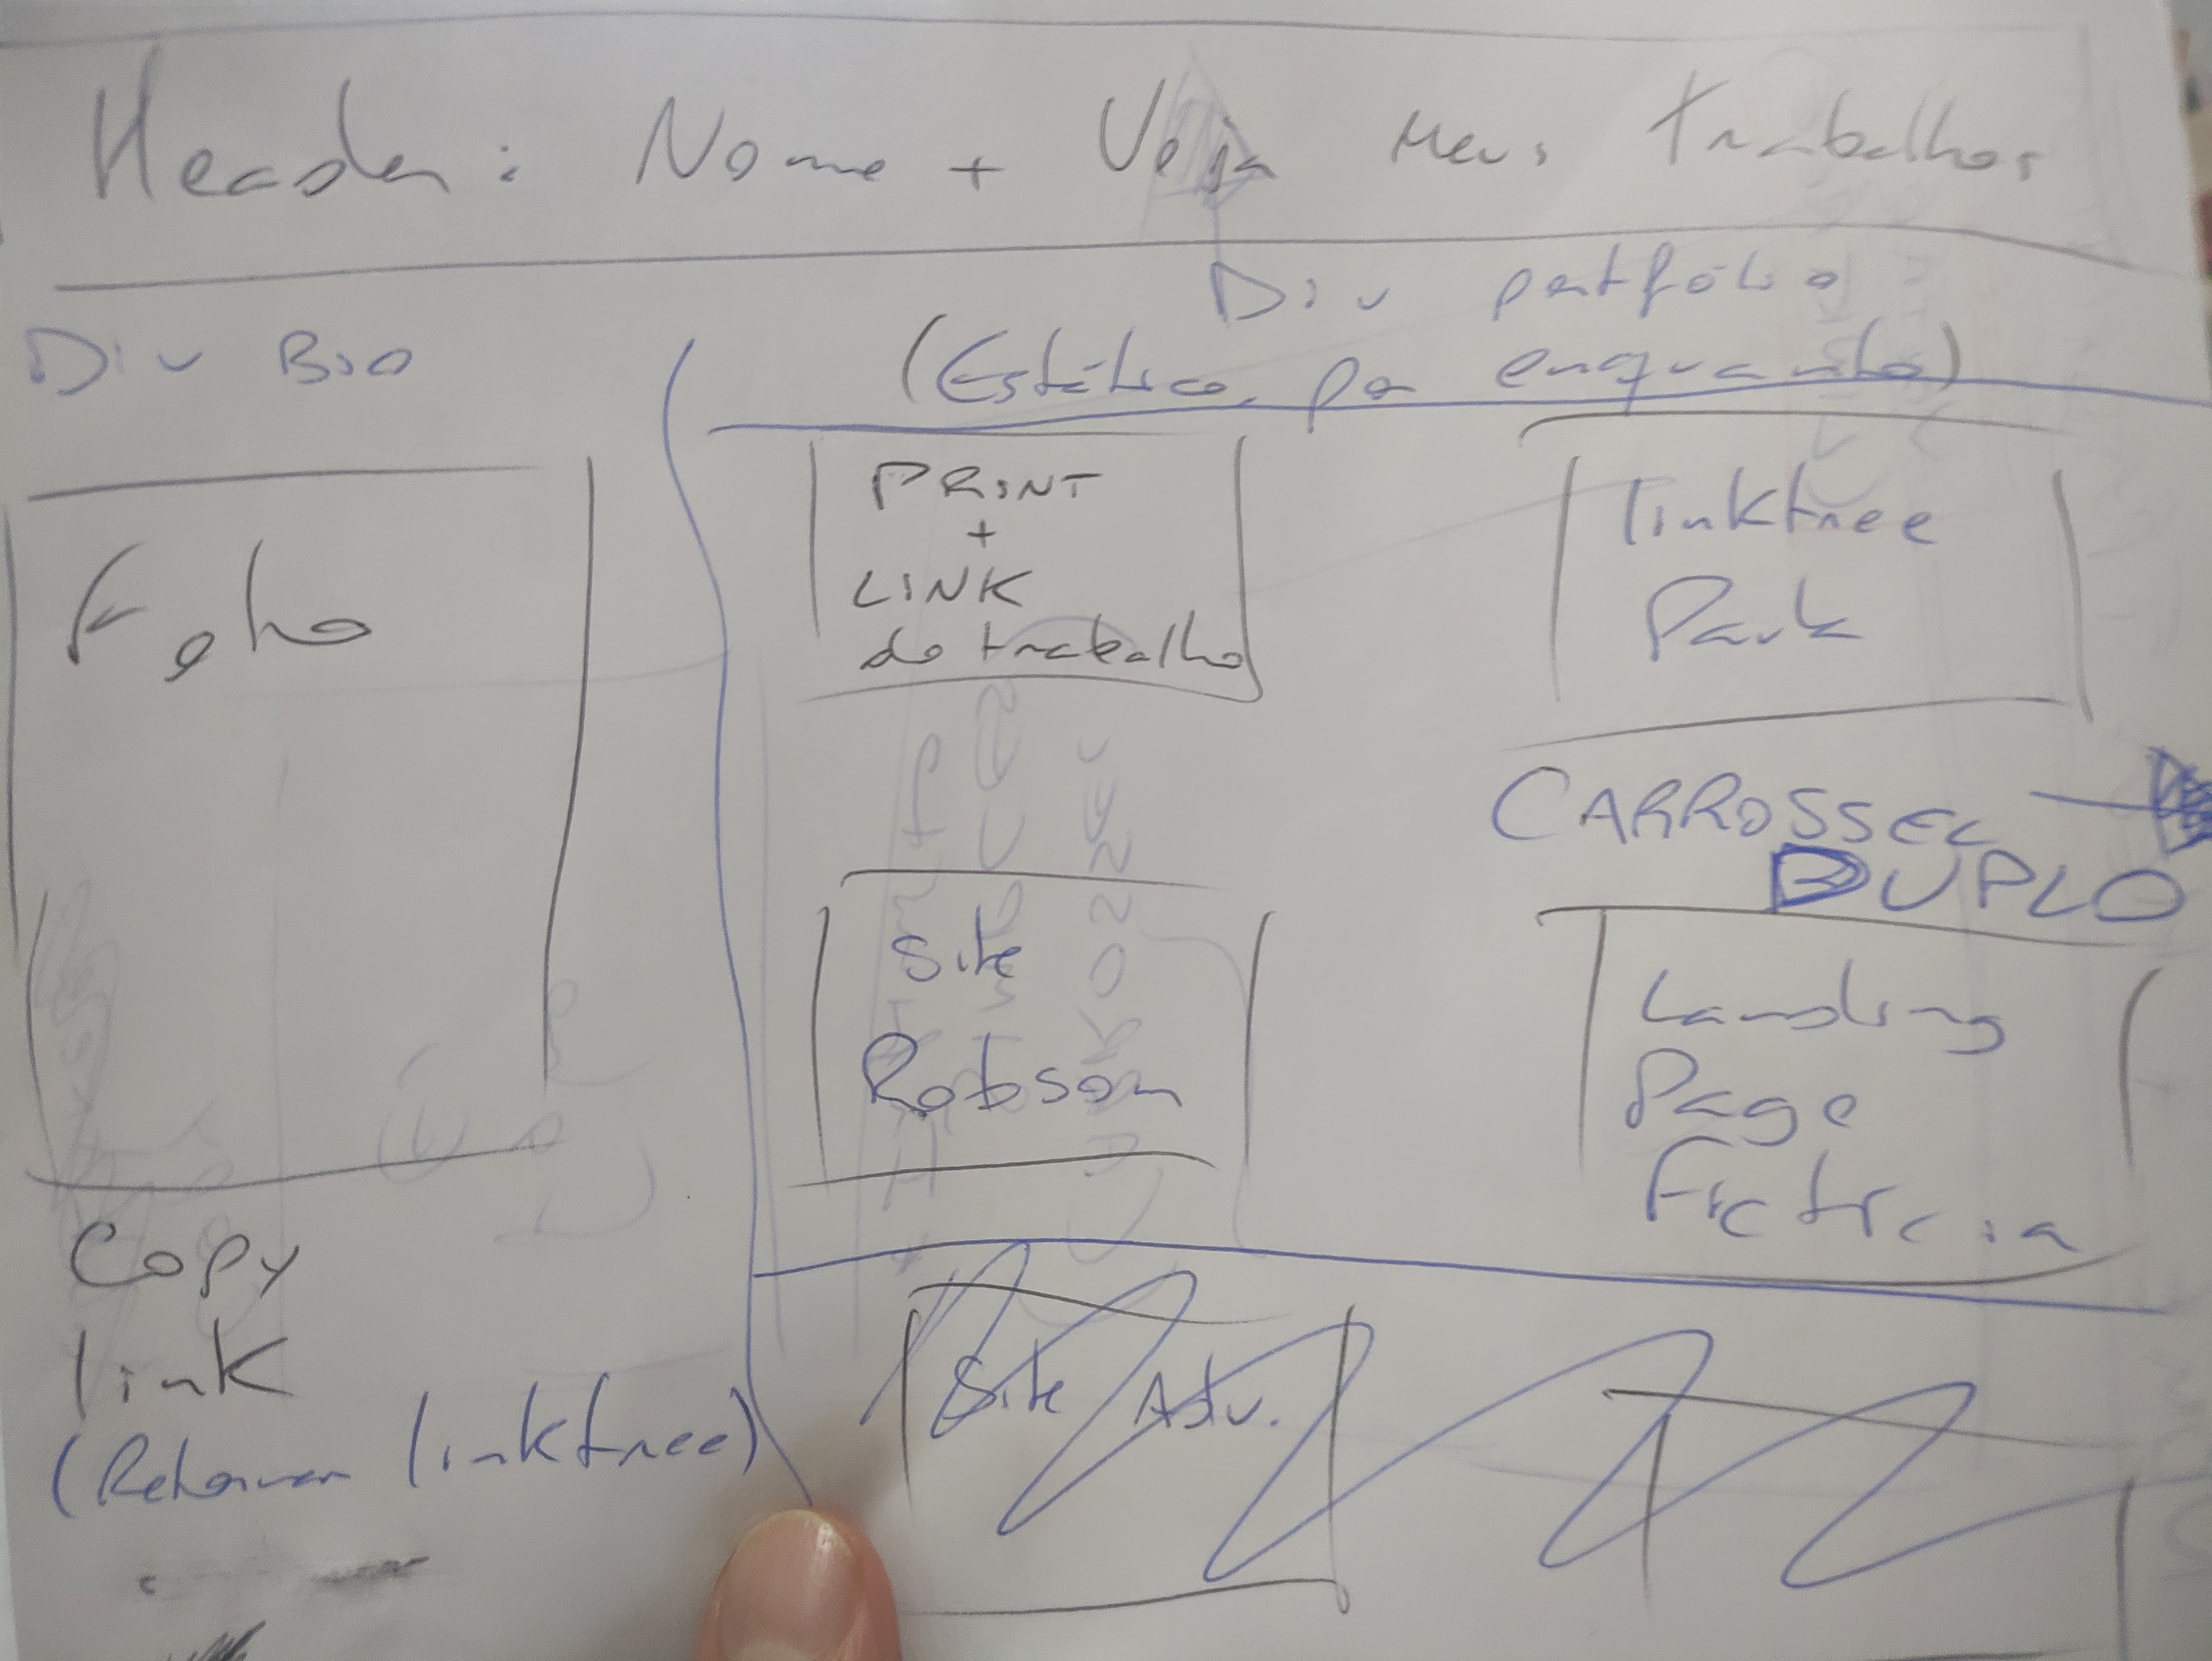 Header: Nome + Veja Meus trabalhos
Div Bio
Foto
Copy
link
(Retornar linktree)
Div portfólio
(Estático, por enquanto)
PRINT
+
LINK
do trabalho
linktree
CARROSSEL
DUPLO
Site
Robson
Landing
Page
Fictícia
Site Adv.